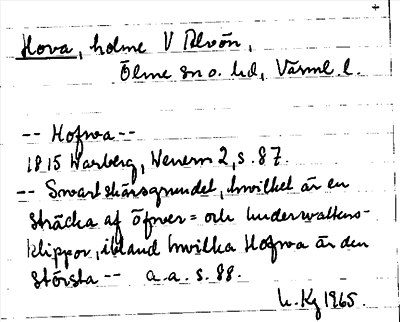 Hova, holme V Alvön,
Ölme sn o. hd, Värml. l.
-- Hofwa --
1815 Warberg, Wenern 2, s. 87.
-- Swartskärsgrundet, hwilket är en
sträcka af öfver= och underwattens-
klippor, ibland hwilka Hofwa är den
största -- a.a. s. 88.
Kg 1965.